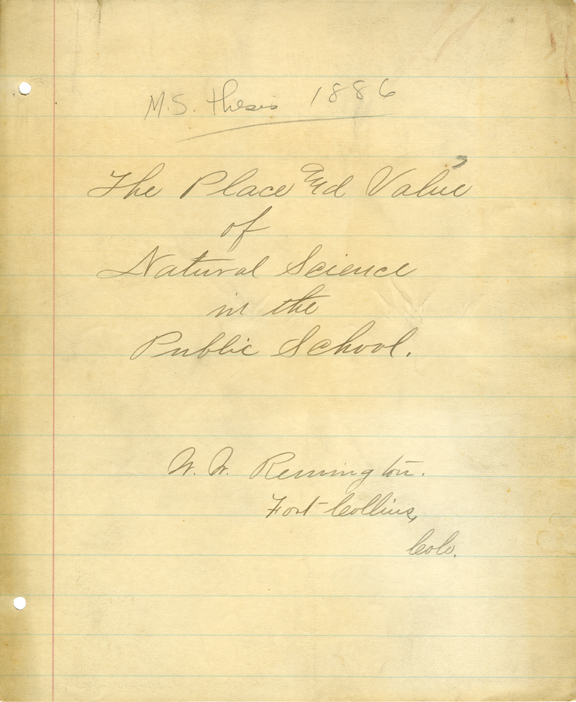 M.S. thesis 1886
The Place and Value
of
Natural Science
in the
Public School.
W. W. Remington.
Fort Collins,
Colo.